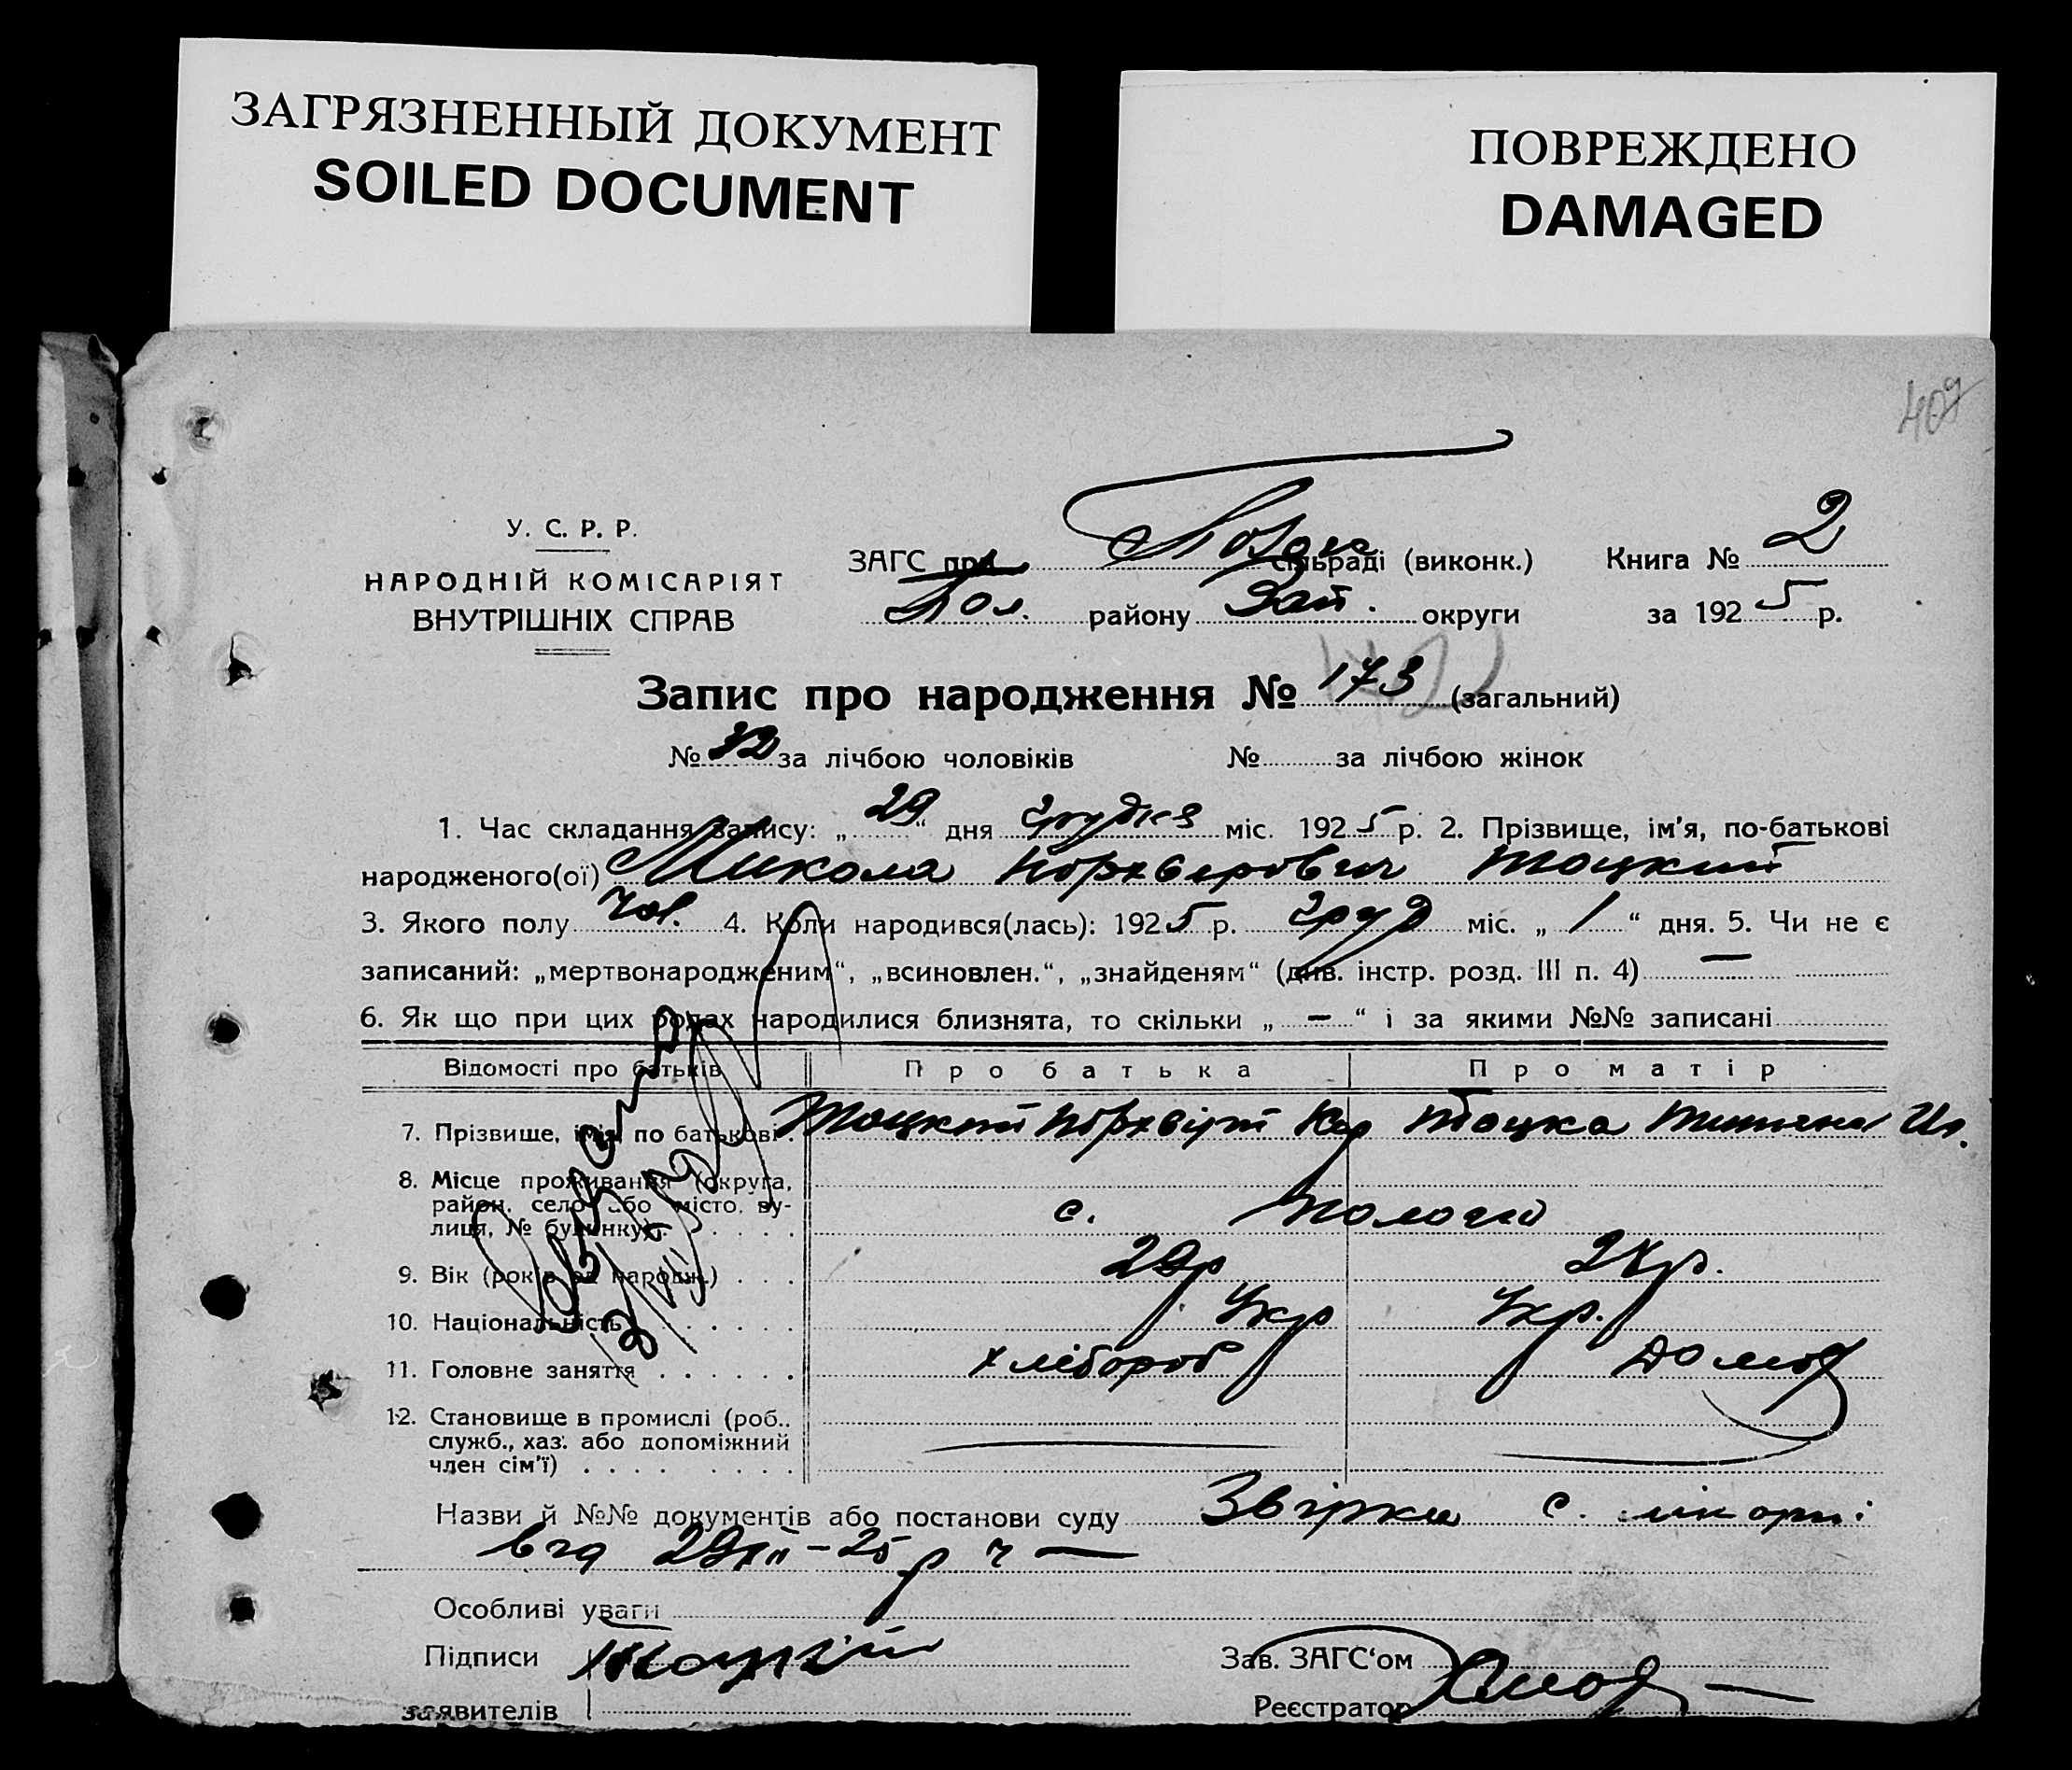 ЗАГРЯЗНЕННЫЙ ДОКУМЕНТ
SOILED DOCUMENT
ПОВРЕЖДЕНО
DAMAGED
409
У. С. Р. Р.
НАРОДНІЙ КОМІСАРІЯТ
ВНУТРІШНІХ СПРАВ
ЗАГС при сільраді (виконк.) Книга № 2
Пол. району Зап. округи за 1925 р.
Запис про народження № 173 (загальний)
№ за лічбою чоловіків № за лічбою жінок
1. Час складання запису: „29“ дня грудня міс. 1925 р. 2. Прізвище, ім'я, по-батькові
народженого(ої) Микола Порхвирович Тоцкий
3. Якого полу чол. 4. Коли народився(лась): 1925 р. груд міс. „1“ дня. 5. Чи не є
записаний: „мертвонародженим“, „всиновлен.“, „знайденям“ (див. інстр. розд. III п. 4) —
6. Як що при цих родах народилися близнята, то скільки „—“ і за якими №№ записані
Відомості про батьків Про батька Про матір
7. Прізвище, імія, по батькові. Тоцкий Порхвірій Тоцка Титяна Ил.
8. Місце проживання (округа,
район, село або місто, ву-
лиця, № будинку) с. Пологи
9. Вік (років од народж.) 29р 2 р.
10. Національність Укр Укр.
11. Головне заняття хлібороб Домог
12. Становище в промислі (роб.,
служб., хаз. або допоміжний
член сім'ї)
Назви й №№ документів або постанови суду Звірка с.
від 29XII-25р ч —
Особливі уваги
Підписи Тоцкій Зав. ЗАГС'ом
заявителів Реєстратор